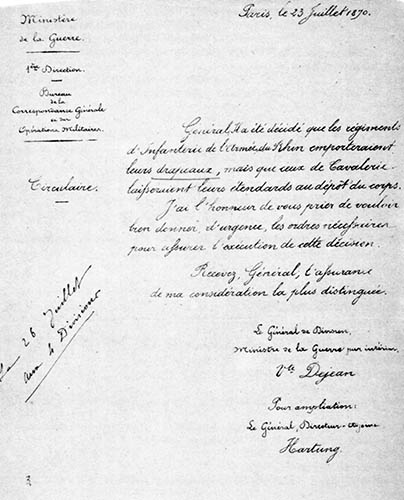 Paris, le 23 Juillet 1870.
Ministère
de la Guerre.
1ère Direction.
Bureau
de la
Correspondance Générale
et des
Opérations Militaires.
Circulaire.
Général, Il a été décidé que les régiments
d'Infanterie de l'Armée du Rhin emporteraient
leurs drapeaux, mais que ceux de Cavalerie
laisseraient leurs étendards au dépôt du corps.
J'ai l'honneur de vous prier de vouloir
bien donner, d'urgence, les ordres nécessaires
pour assurer l'exécution de cette décision.
Recevez, Général, l'assurance
de ma considération la plus distinguée.
Le Général de Division,
Ministre de la Guerre par intérim,
Vte Dejean
Pour ampliation:
Le Général, Directeur-adjoint
Hartung.
26 Juillet
aux 4 Divisions